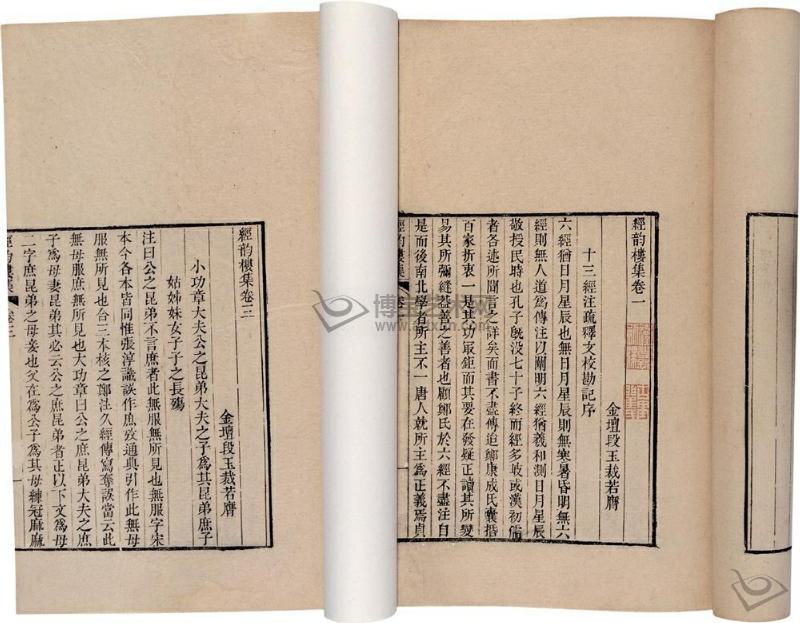 經韵樓集卷一
金壇段玉裁若膺
十三經注疏釋文校勘記序
六經猶日月星辰也無日月星辰則無寒暑昏明無六
經則無人道爲傳注以闡明六經猶羲和測日月星辰
敬授民時也孔子旣没七十子終而經多歧或漢初儒
者各述所聞言之詳矣而書不盡傳迨鄭康成氏囊括
百家折衷一是其功取鉅而其要在發疑正讀其所變
易其所彌縫蓋善之善者也顧鄭氏於六經不盡注自
是而後南北學有所主不一唐人就所主爲正義焉貞
經韵樓集
經韵樓集卷三
金壇段玉裁若膺
小功章大夫公之昆弟大夫之子爲其昆弟庶子
姑姊妹女子子之長殤
注曰公之昆弟不言庶者此無服無所見也無服字宋
本今各本皆同惟張淳識誤作庶攷通典引作此無母
服無所見也合三本核之鄭注久經傳寫奪誤當云此
無母服庶無所見也大功章曰公之庶昆弟大夫之庶
子爲母妻昆弟其必云公之庶昆弟者正以下文爲母
二字庶昆弟之母妾也父在爲公子爲其母練冠麻麻
經韵樓集 卷三
博宝艺术网
artxun.com